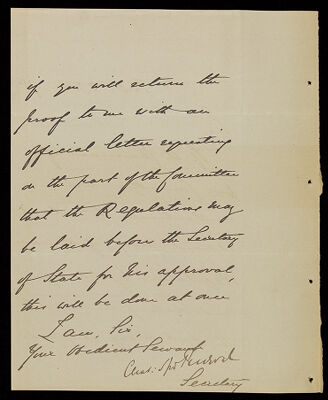 if you will return the
proof to me with an
official letter requesting
on the part of the Committee
that the Regulations may
be laid before the Secretary
of State for his approval,
this will be done at once
I am, Sir,
Your Obedient Servant
Secretary